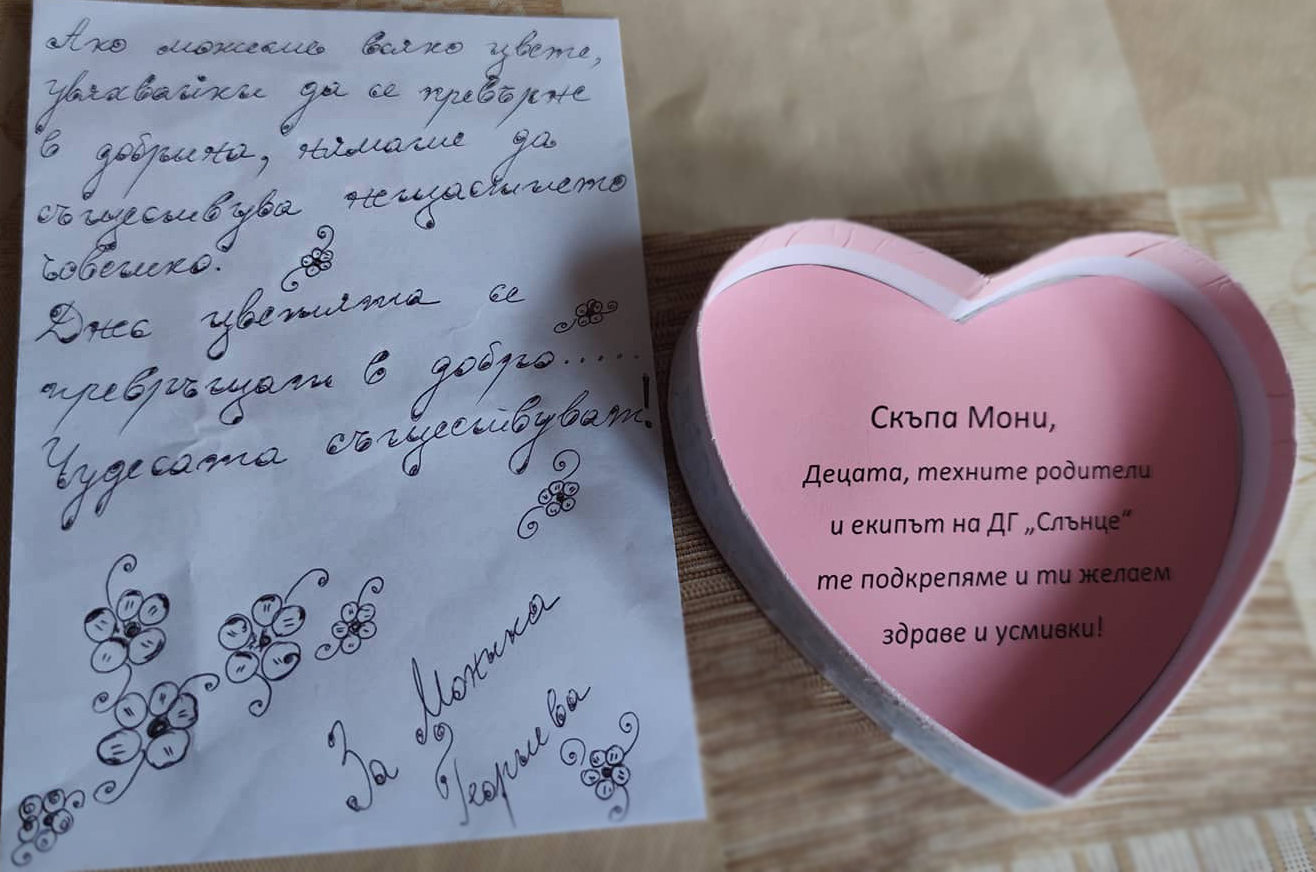 Ако можеше всяко цвете,
увяхвайки да се превърне
в добрина, нямаше да
съществува нещастието
човешко.
Днес цветята се
превръщат в добро.....
Чудесата съществуват!
За Моника
Георгиева
Скъпа Мони,
Децата, техните родители
и екипът на ДГ „Слънце“
те подкрепяме и ти желаем
здраве и усмивки!